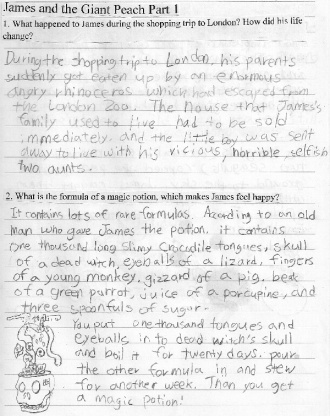 James and the Giant Peach Part 1
1. What happened to James during the shopping trip to London? How did his life
change?
During the shopping trip to London, his parents
suddenly got eaten up by an enormous
angry rhinoceros which had escaped from
the London Zoo. The house that James's
family used to live had to be sold
immediately and the little boy was sent
away to live with his vicious, horrible, selfish
two aunts.
2. What is the formula of a magic potion, which makes James feel happy?
It contains lots of rare formulas. Acording to an old
man who gave James the potion, it contains
one thousand long slimy Crocodile tongues, skull
of a dead witch, eyeballs of a lizard, fingers
of a young monkey, gizzard of a pig, beak
of a green parrot, juice of a porcupine, and
three spoonfuls of sugar.
You put one thousand tongues and
eyeballs in to dead witch's skull
and boil it for twenty days. pour
the other formula in and stew
for another week. Than you get
a magic potion!